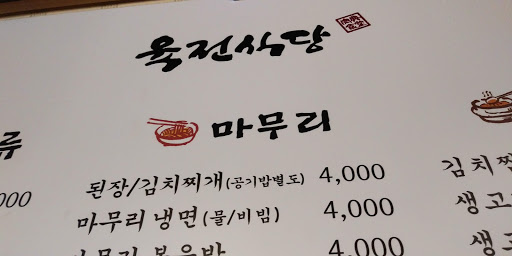 육전식당
마무리
류
된장/김치찌개(공기밥별도) 4,000
마무리냉면(물/비빔) 4,000
마무리 볶음밥 4,000
000
김치찌
생고
생